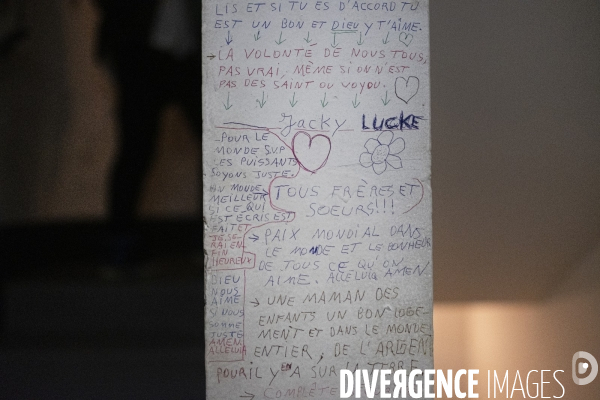 LIS ET SI TU ES D'ACCORD TU
EST UN BON ET DIEU Y T'AIME.
→ LA VOLONTÉ DE NOUS TOUS,
PAS VRAI, MÊME SI ON N'EST
PAS DES SAINT OU VOYOU.
Jacky LUCKE
POUR LE
MONDE SUP
LES PUISSANTS
SOYONS JUSTE.
MONDE
MEILLEUR
SI CE QUI
EST ECRIS EST
FAITE
JE SE
RAI EN
FIN
HEUREUX
DIEU
NOUS
AIME
SI NOUS
SOMME
JUSTE
AMEN.
ALLELUIA
TOUS FRÈRES ET
SOEURS!!!
→ PAIX MONDIAL DANS
LE MONDE ET LE BONHEUR
DE TOUS CE QU'ON
AIME. ALLELUIA AMEN.
→ UNE MAMAN DES
ENFANTS UN BON LOGE-
MENT ET DANS LE MONDE
ENTIER, DE L'ARGENT
POUR IL Y EN A SUR LA TERRE
→ COMPLÈTE
DIVERGENCE IMAGES